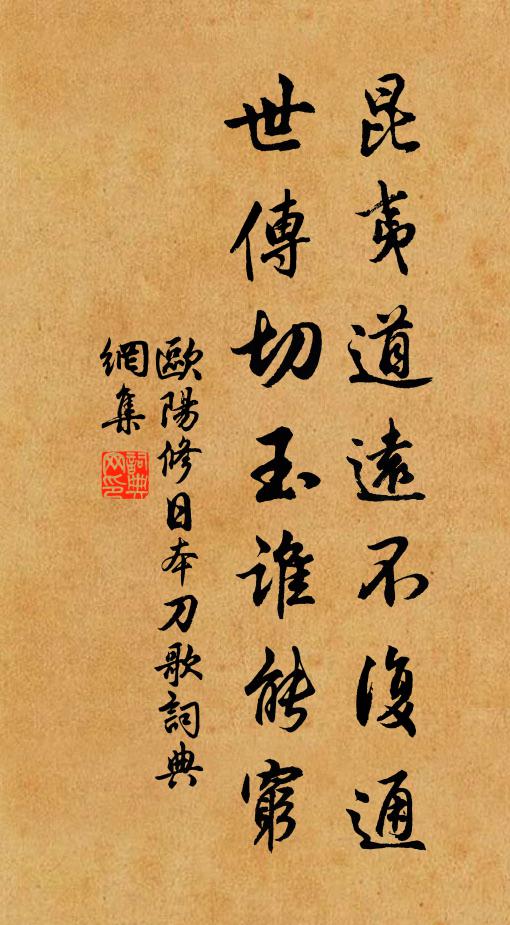 昆夷道遠不復通
世傳切玉誰能窮
歐陽修日本刀歌詞典
網集
詞典網印